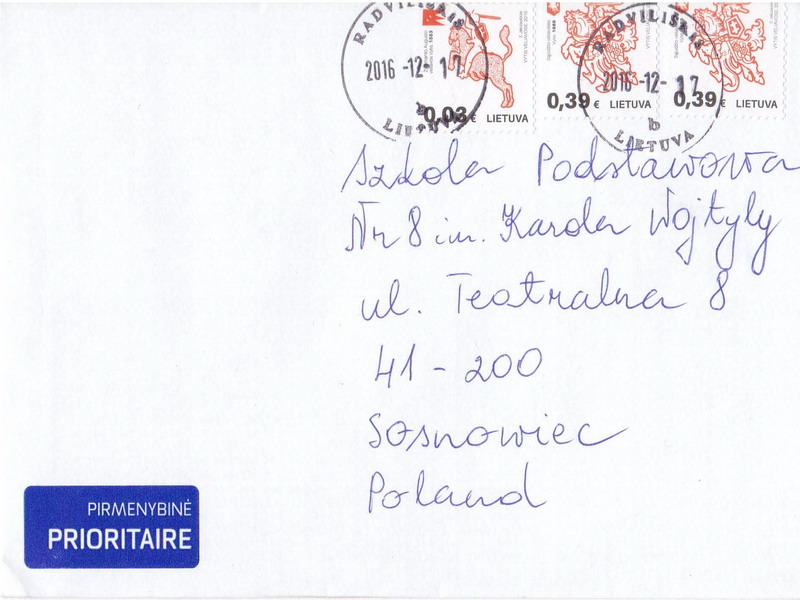 RADVILIŠKIS
2016-12-17
b
LIETUVA
0,03 € LIETUVA
0,39 € LIETUVA
RADVILIŠKIS
2016-12-17
b
LIETUVA
0,39 € LIETUVA
Szkoła Podstawowa
Nr 8 im. Karola Wojtyły
ul. Teatralna 8
41-200
Sosnowiec
Poland
PIRMENYBINĖ
PRIORITAIRE